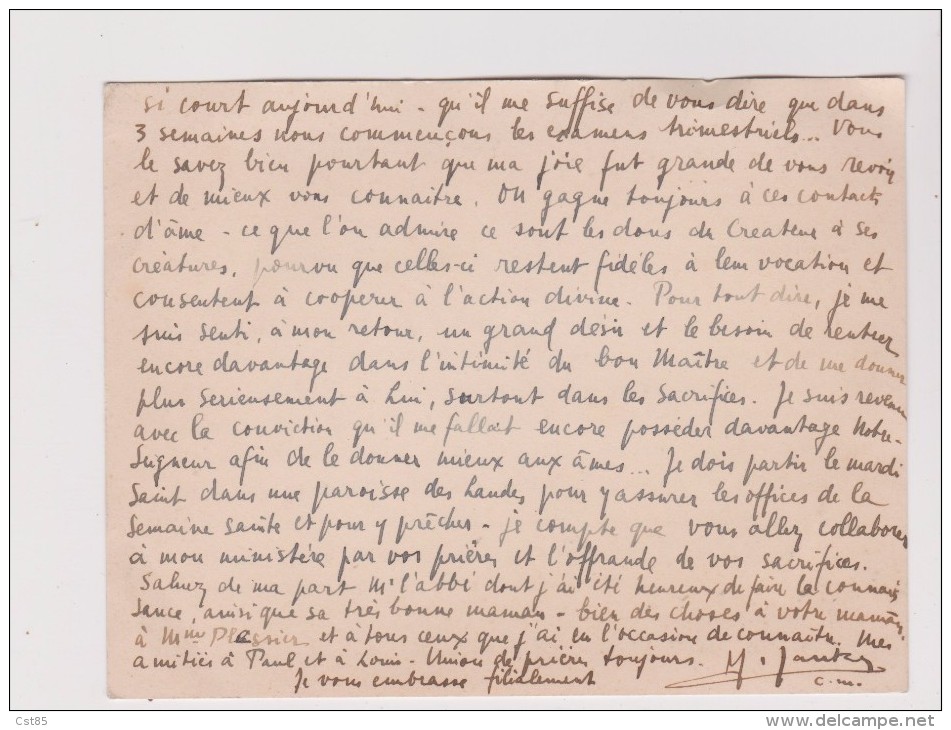 si court aujourd'hui - qu'il me suffise de vous dire que dans
3 semaines nous commençons les examens trimestriels... Vous
le savez bien pourtant que ma joie fut grande de vous revoir
et de mieux vous connaitre. On gagne toujours à ces contacts
d'âme - ce que l'on admire ce sont les dons du Createur à ses
créatures, pourvu que celles-ci restent fidèles à leur vocation et
consentent à coopérer à l'action divine. Pour tout dire, je me
suis senti, à mon retour, un grand désir et le besoin de rentrer
encore davantage dans l'intimité du bon Maître et de me donner
plus serieusement à Lui, surtout dans les sacrifices. Je suis revenu
avec la conviction qu'il me fallait encore posséder davantage Notre-
Seigneur afin de le donner mieux aux âmes... Je dois partir le mardi
Saint dans une paroisse des Landes pour y assurer les offices de la
Semaine sainte et pour y prêcher - je compte que vous allez collaborer
à mon ministère par vos prières et l'offrande de vos sacrifices.
Saluez de ma part Mr l'abbé dont j'ai été heureux de faire la connais
sance, ainsi que sa très bonne maman - bien des choses à votre maman,
à Mme et à tous ceux que j'ai eu l'occasion de connaître. Mes
amitiés à Paul et à Louis - Union de prières toujours.
c.m.
Je vous embrasse filialement
Cst85
www.delcampe.net